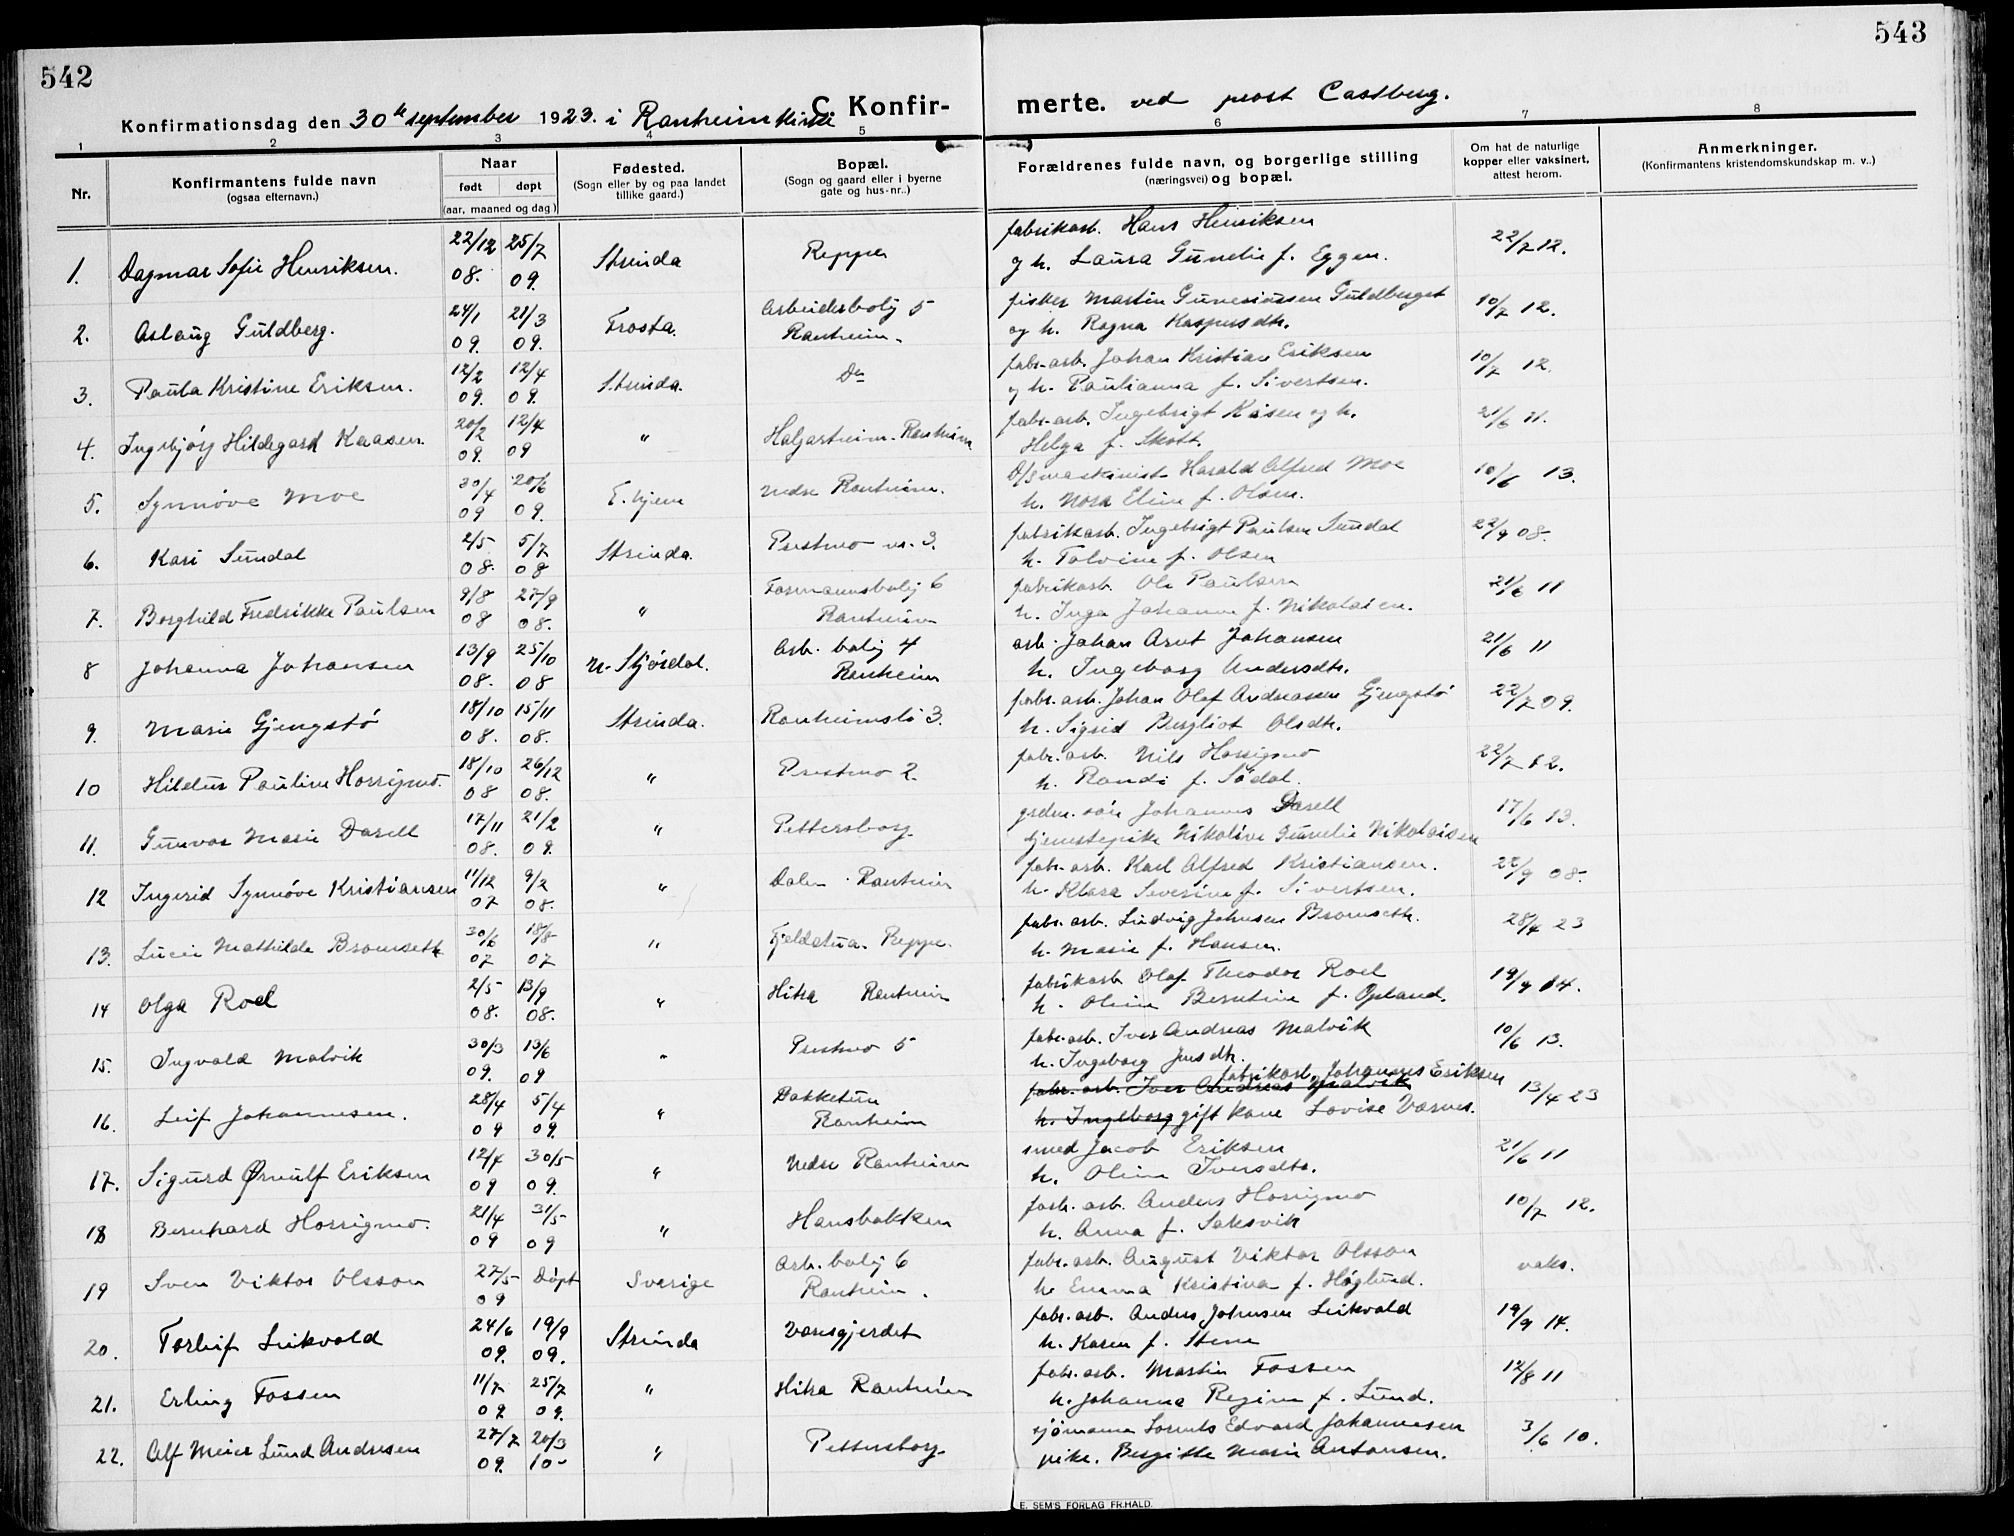 542
543
Konfirmationsdag den 30te september 1923. i Ranheim kirke
C. Konfir-
merte. ved prost Castberg.
1 2 3 4 5 6 7 8
Nr.
Konfirmantens fulde navn
(ogsaa efternavn.)
Naar
født døpt
(aar, maaned og dag)
Fødested.
(Sogn eller by og paa landet
tillike gaard.)
Bopæl.
(Sogn og gaard eller i byerne
gate og hus-nr..)
Forældrenes fulde navn, og borgerlige stilling
(næringsvei) og bopæl.
Om hat de naturlige
kopper eller vaksinert,
attest herom.
Anmerkninger.
(Konfirmantens kristendomskundskap m. v..)
1. Dagmar Sofie Henriksen. 22/12 08. 25/7 09. Strinda Reppe
fabrikarb. Hans Henriksen
og h. Laura Gunelie f. Eggen. 22/7 12.
2. Aslaug Guldberg. 24/1 09. 21/3 09. Frosta. Arbeiderbolig 5
Ranheim.
fisker Martin Guneriussen Guldberget
og h. Ragna Kaspersdtr. 10/7 12.
3. Paula Kristine Eriksen. 12/2 09. 12/4 09. Strinda. Do
fabr.arb. Johan Kristian Eriksen
og h. Paulianna f. Sivertsen. 10/7 12.
4. Ingebjørg Hildegard Kaasen. 20/2 09. 12/4 09 " Halgartheim. Ranheim
fabr.arb. Ingebrigt Kåsen og h.
Helga f. Skott. 21/6 11.
5. Synnøve Moe 30/4 09 20/6 09. T.hjem nedre Ranheim.
D/S maskinist Harald Alfred Moe
h. Nora Eline f. Olsen. 10/6 13.
6. Kari Sundal 2/5 08. 5/7 08 Strinda. Prestmo nr. 3.
fabrikarb. Ingebrigt Paulsen Sundal
h. Tolvine f. Olsen 22/9 08.
7. Borghild Fredrikke Paulsen 9/8 08 27/9 08. " Formannsbolig 6
Ranheim
fabrikarb. Ole Paulsen
h. Inga Johanne f. Nikolaisen. 21/6 11
8 Johanna Johansen 13/9 08. 25/10 08 N-Stjørdal. Arb. bolig 4
Ranheim
arb. Johan Arnt Johansen
h. Ingeborg Andersdtr. 21/6 11
9. Marie Gjengstø 18/10 08. 15/11 08. Strinda. Ranheimslø 3.
fabr. arb. Johan Olaf Andreassen Gjengstø
h. Sigrid Bergliot Olsdtr. 22/7 09.
10 Hildur Pauline Horrigmo. 18/10 08 26/12 08. " Prestmo 2.
fabr. arb. Nils Horrigmo
h. Randi f. Sødal. 22/7 12.
11. Gunvor Marie Darell 17/11 08. 21/2 09. " Pettersborg
grdm. søn Johannes Darell
tjenstepike Nikolive Gunelie Nikolaisen 17/6 13.
12 Ingerid Synnøve Kristiansen 11/12 07 9/2 08. " Dalen. Ranheim
fabr. arb. Karl Alfred Kristiansen.
h. Klara Severine f. Sivertsen. 22/9 08.
13. Lucie Mathilde Bromseth 30/6 07 18/8 07 " Fjeldstua. Reppe.
fabr. arb. Ludvig Johnsen Bromseth.
h. Marie f. Hansen. 28/4 23
14 Olga Roel 2/5 08. 13/9 08. " Hitra Ranheim
fabrikarb Olaf Theodor Roel
h. Oline Berntine f. Opland. 19/9 14.
15. Ingvald Malvik 30/3 09. 13/6 09 " Prestmo 5
fabr.arb. Iver Andreas Malvik
h. Ingeborg Jensdtr. 10/6 13.
16. Leif Johannesen. 28/4 09 5/4 09. " Bakketun
Ranheim
fabrikarb. Johannes Eriksen
fabr. arb. Iver Andreas Malvik
h. Ingeborg gift kone Lovise Varnes. 13/4 23
17. Sigurd Ørnulf Eriksen 12/4 09 30/5 09. " Nedre Ranheim
smed Jacob Eriksen
h. Oline Iversdtr. 21/6 11
18 Bernhard Horrigmo. 21/4 09 31/5 09 " Hansbakken
fabr. arb. Anders Horrigmo
h. Anna f. Saksvik 10/7 12.
19 Sven Viktor Olsson 27/5 09 Døpt Sverige Arb. bolig 6
Ranheim.
fabr. arb. August Viktor Olsson
h. Emma Kristina f. Høglund. vaks.
20. Torleif Leikvold 24/6 09. 19/9 09. Strinda Varesgjerdet
fabr. arb. Anders Johnsen Leikvold
h. Karen f. Stene 19/9 14.
21. Erling Fossen 11/7 09 25/7 09. " Hitra Ranheim
fabr. arb. Martin Fossen
h. Johanna Regine f. Lund. 12/8 11
22. Alf Meier Lund Andresen 27/7 09. 20/3 10- " Pettersborg
sjømann Lorents Edvard Johannesen
pike. Bergitte Marie Antonsen. 3/6 10.
E. SEM'S FORLAG FR.HALD.